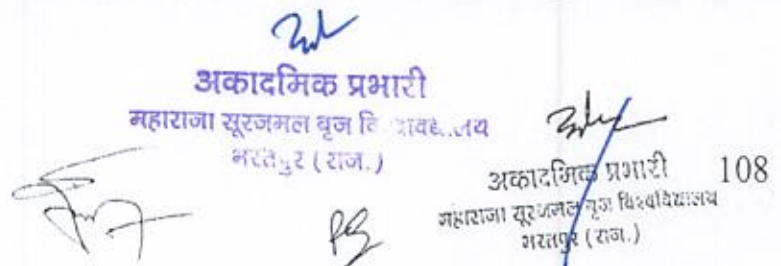 अकादमिक प्रभारी
महाराजा सूरजमल बृज
भरतपुर (राज.)
अकादमिक प्रभारी
महाराजा सूरजमल बृज विश्वविद्यालय
भरतपुर (राज.)
108